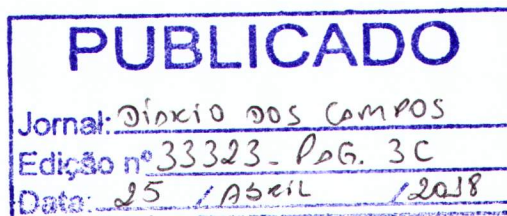 PUBLICADO
Jornal: DIÁRIO DOS CAMPOS
Edição nº 33323 - PAG. 3C
Data: 25 / ABRIL / 2018